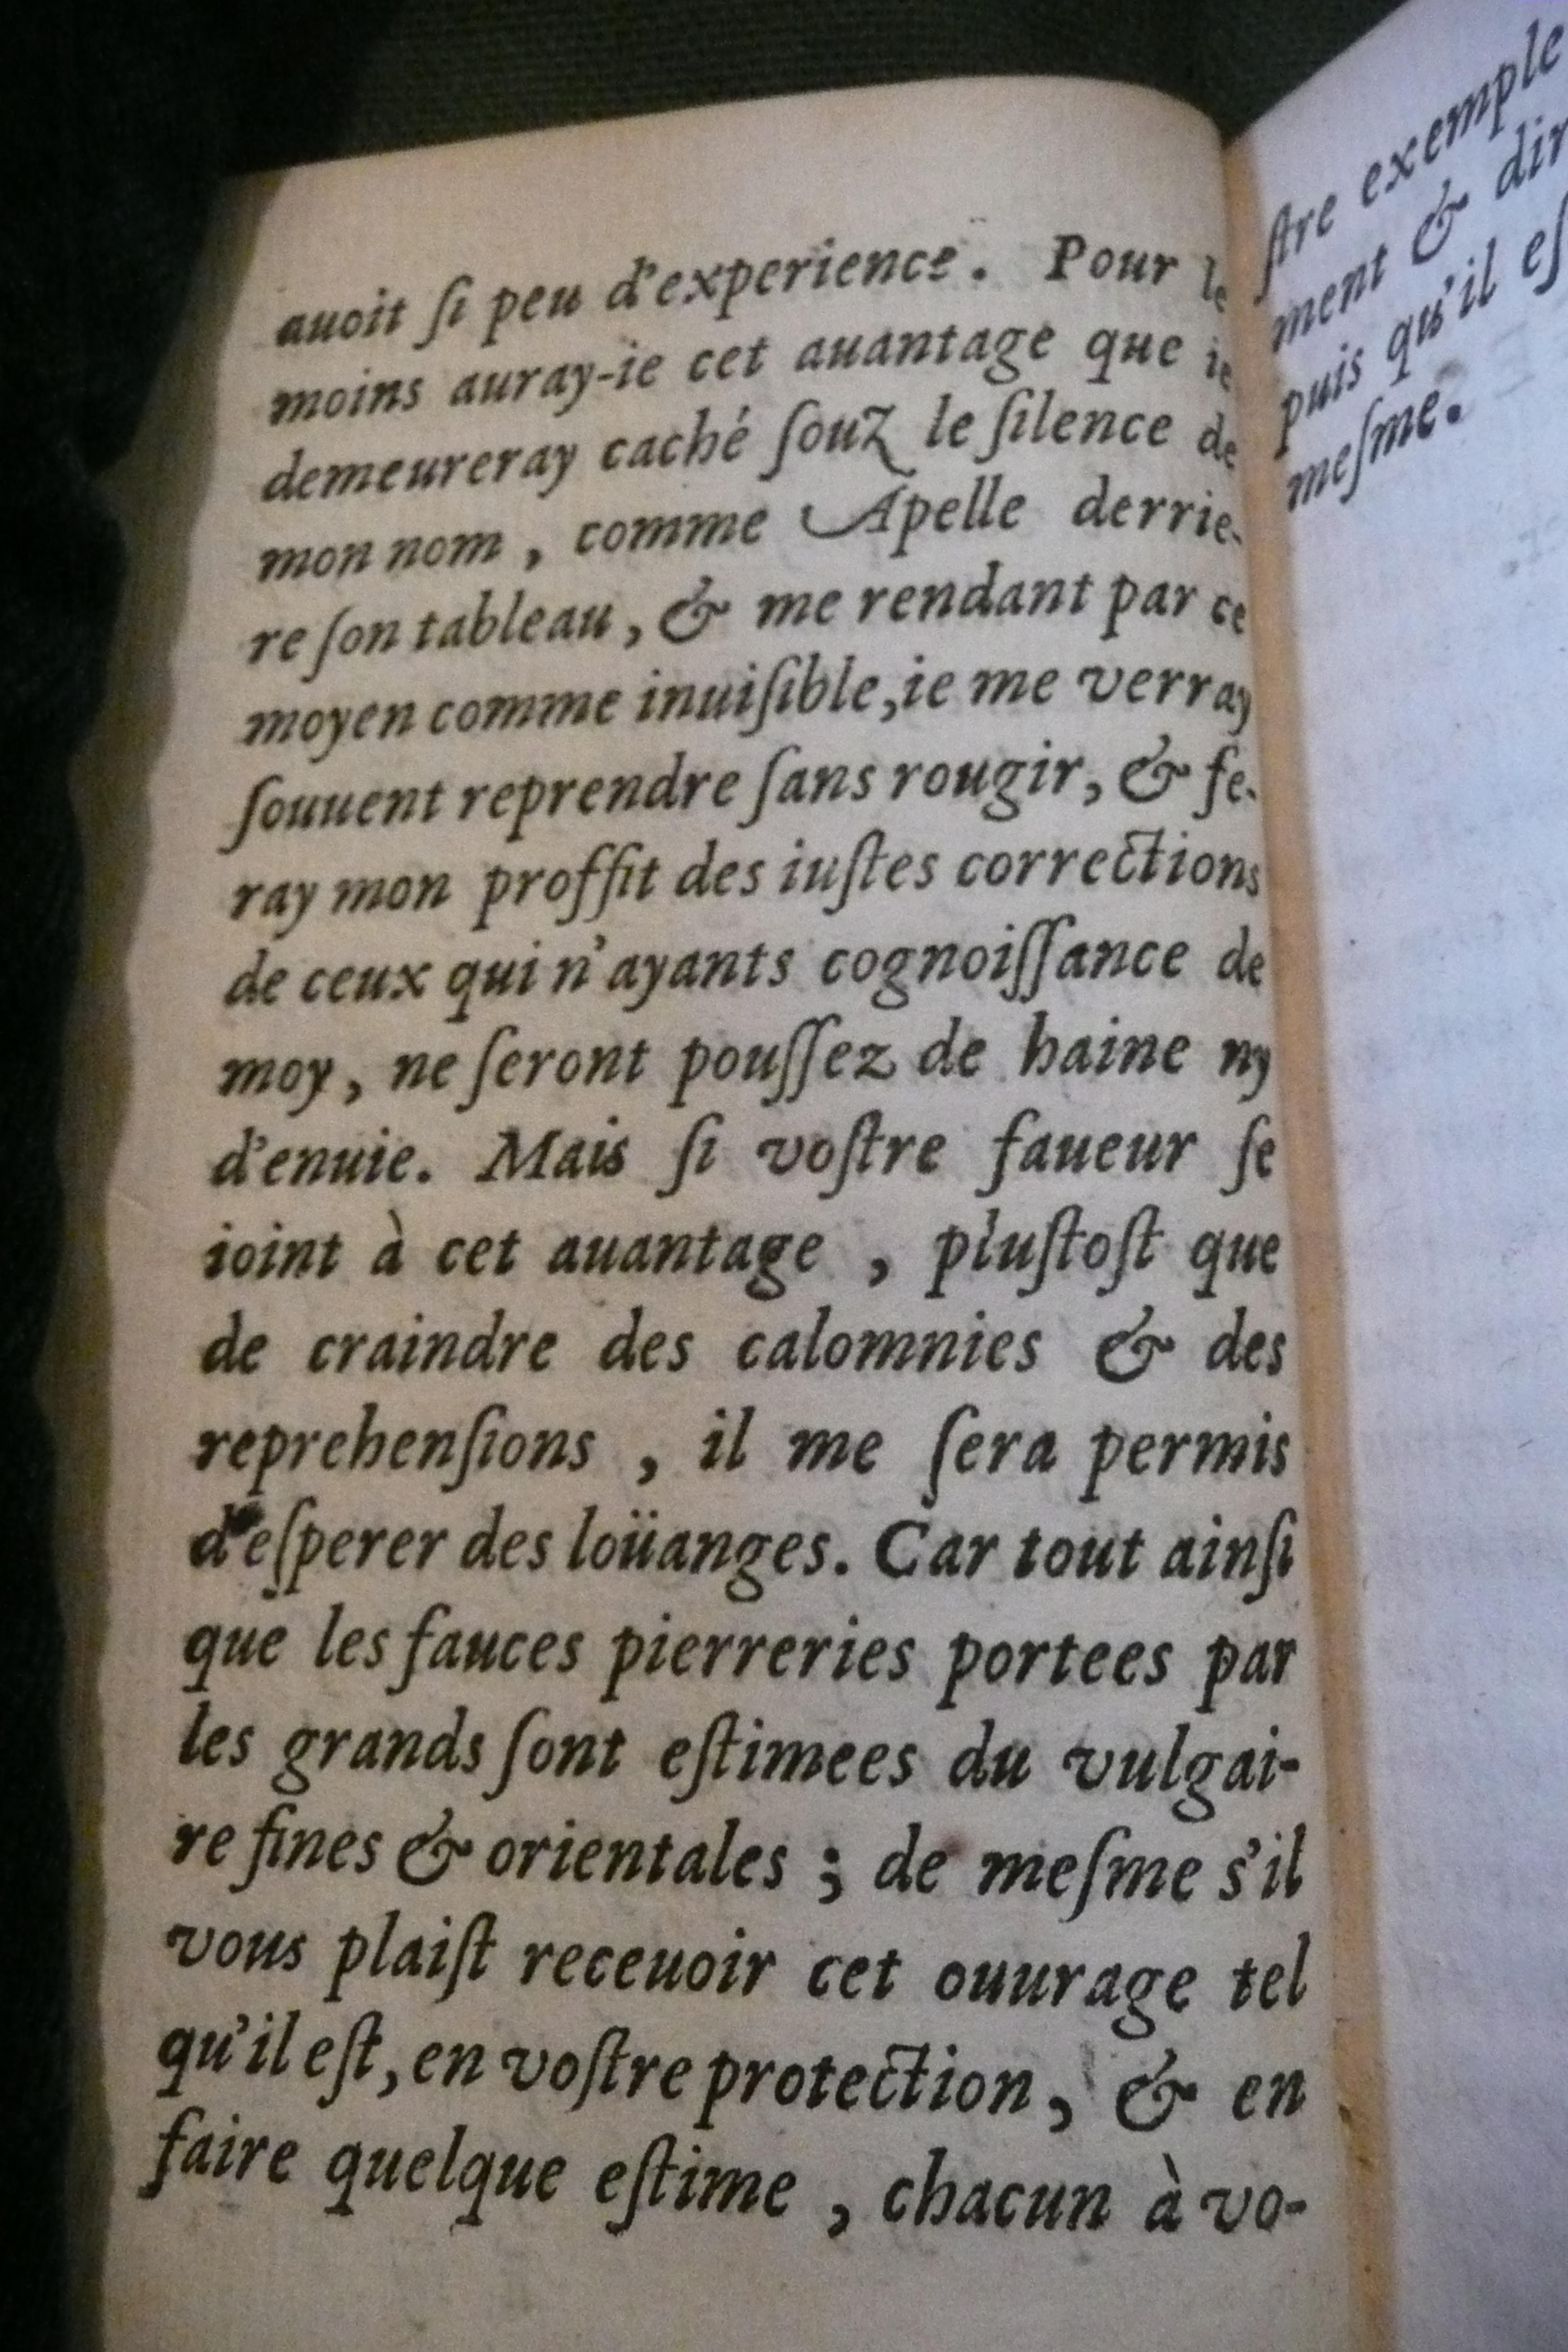 auoit ſi peu d'experience. Pour le
moins auray-ie cet auantage que ie
demeureray caché ſouz le ſilence de
mon nom, comme Apelle derrie-
re ſon tableau, & me rendant par ce
moyen comme inuiſible, ie me verray
ſouuent reprendre ſans rougir, & fe-
ray mon proffit des iuſtes corrections
de ceux qui n'ayants cognoiſſance de
moy, ne ſeront pouſſez de haine ny
d'enuie. Mais ſi voſtre faueur ſe
ioint à cet auantage, pluſtoſt que
de craindre des calomnies & des
reprehenſions, il me ſera permis
d'eſperer des loüanges. Car tout ainſi
que les fauces pierreries portees par
les grands ſont eſtimees du vulgai-
re fines & orientales; de meſme s'il
vous plaiſt receuoir cet ouurage tel
qu'il eſt, en voſtre protection, & en
faire quelque eſtime, chacun à vo-
ſtre exemple
ment & dir
puis qu'il eſ
meſme.